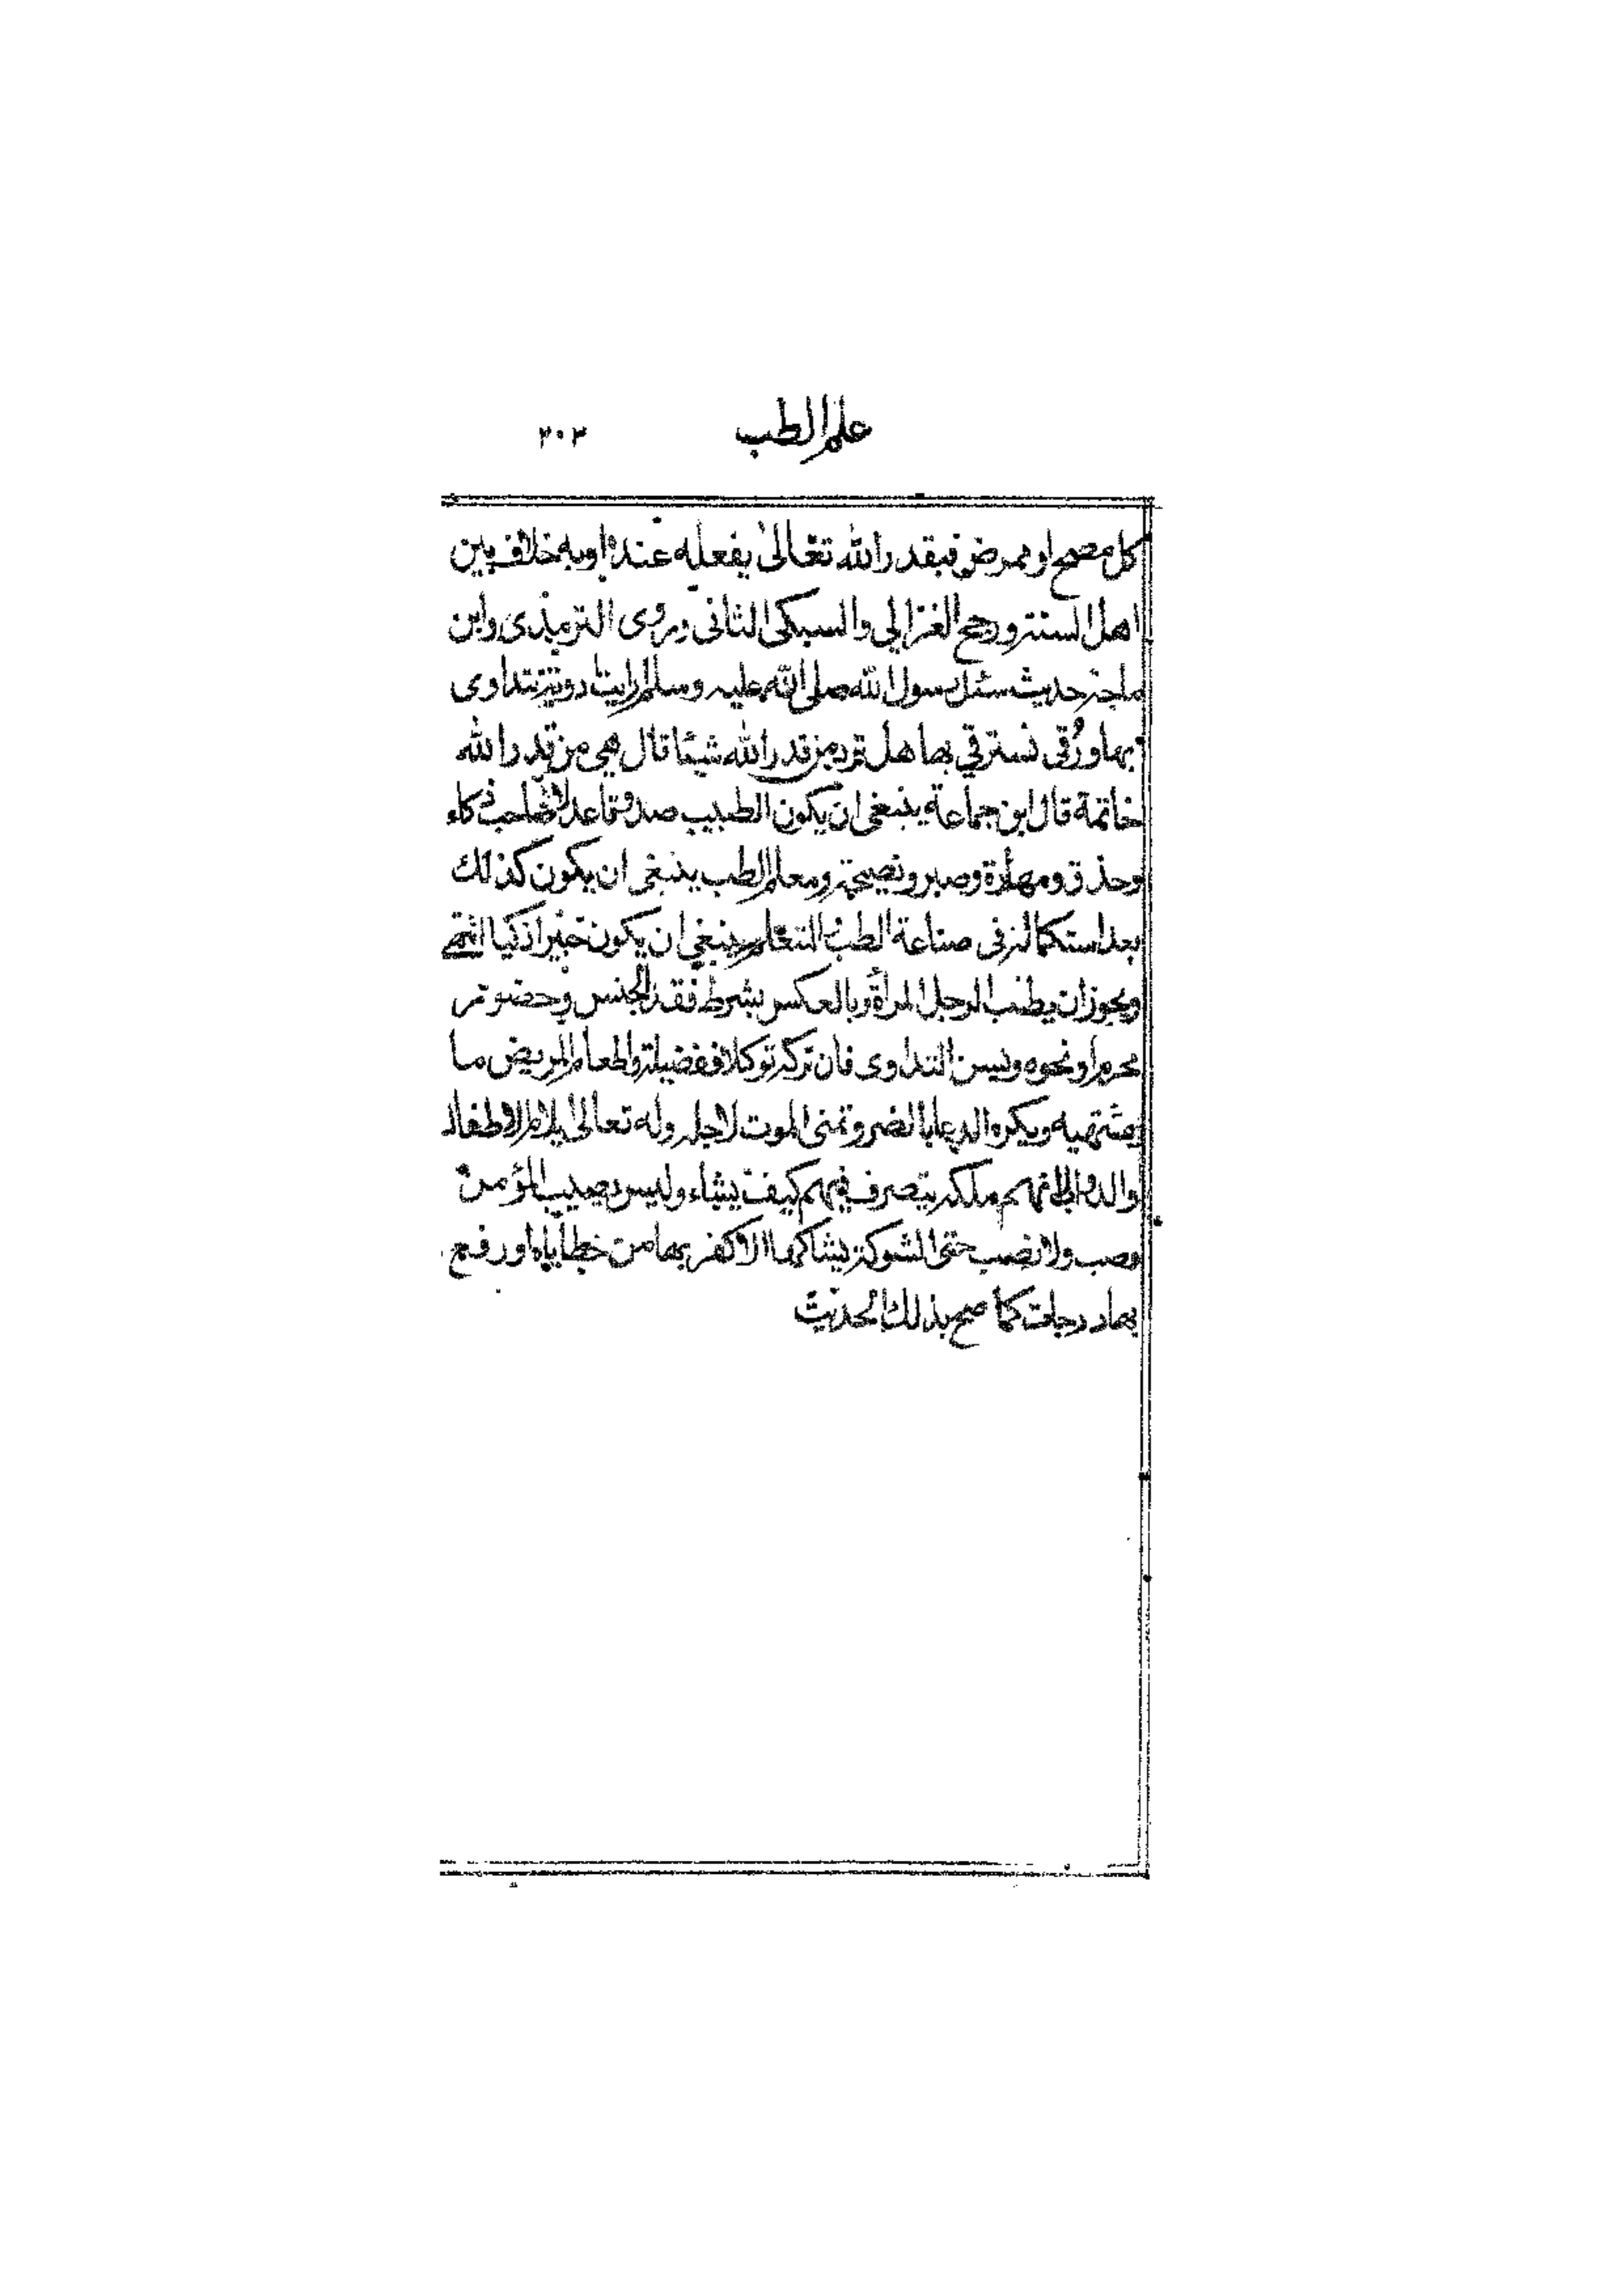 علم الطب ٣٠٣
كل مصح او ممرض فبقدر الله تعالى يفعله عنده اوبه خلاف بين
اهل السنة ورجح الغزالي والسبكي الثاني وروى الترمذي وابن
ماجة حديث سئل رسول الله صلى الله عليه وسلم ارايت دوية نتداوى
بها ورُقى نسترقي بها هل ترد من قدر الله شيئا قال هي من قدر الله
خاتمة قال ابن جماعة ينبغي ان يكون الطبيب صدوقا عدلا صاحب ذكاء
وحذق ومهارة وصبر ونصيحة ومعلم الطب ينبغي ان يكون كذلك
بعد استكماله في صناعة الطب والمتعلم ينبغي ان يكون خيرا ذكيا انتهى
ويجوز ان يطبب الرجل المرأة وبالعكس بشرط فقد الجنس وحضور
محرم او نحوه ويسن التداوى فان تركه توكلا ففضيلة واطعام المريض ما
يشتهيه ويكره الدعا بالضر وتمنى الموت لاجله وله تعالى ايلام الاطفال
والدواب لانهم ملكه يتصرف فيهم كيف يشاء وليس يصيب المؤمن
وصب ولا نصب حتى الشوكة يشاكها الا كفر بها من خطاياه او رفع
بها درجات كما صح بذلك الحديث